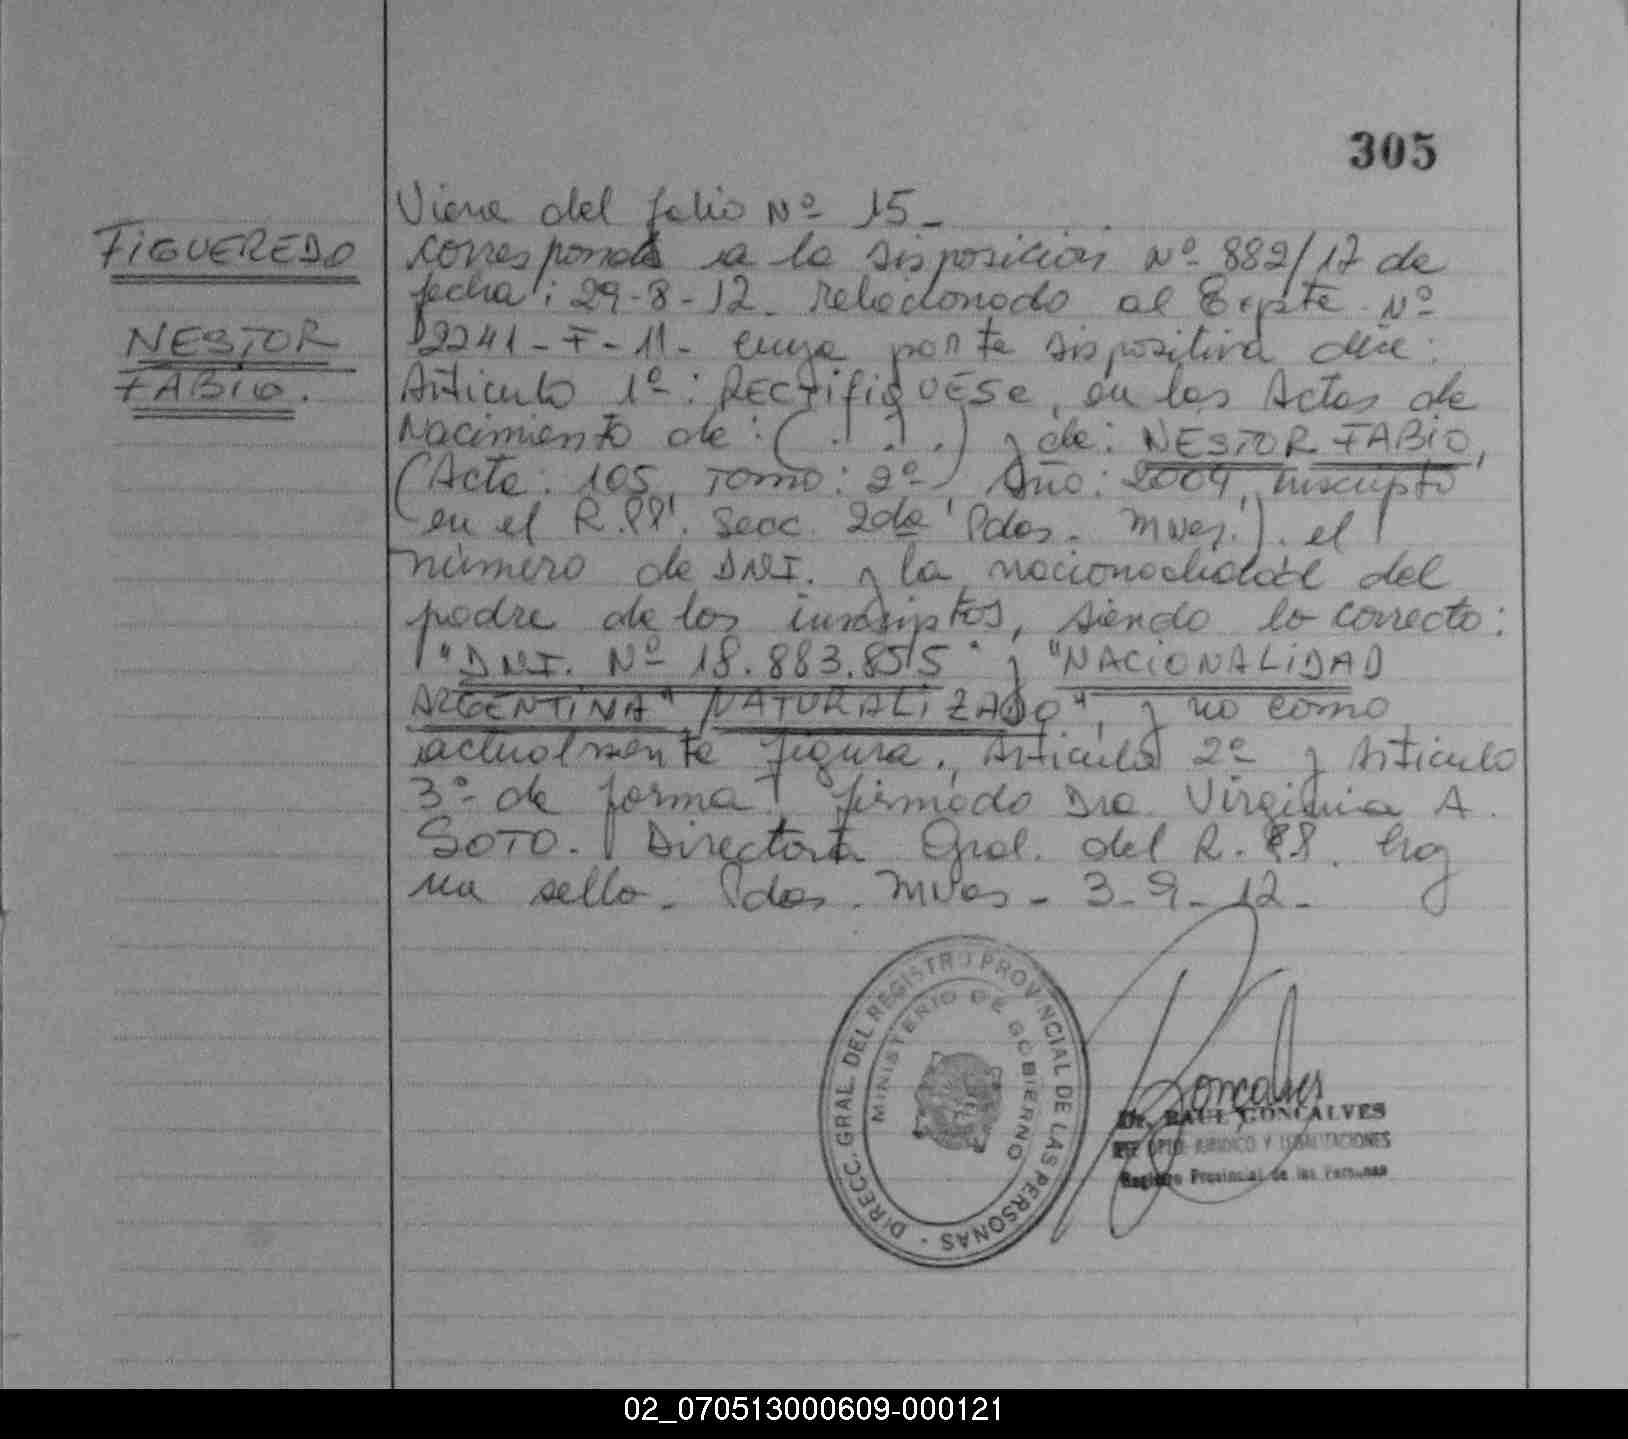 305
Viene del folio Nº 15_
FIGUEREDO
NESTOR
FABIO.
corresponde a la disposicion Nº 882/12 de
fecha: 29-8-12_ relacionado al Expte. Nº
2241-F-11- cuya parte dispositiva dice:
Articulo 1º: RECTIFIQUESE, en las Actas de
Nacimiento de: (...) y de: NESTOR FABIO,
(Acta: 105, Tomo: 2º, Año: 2004, inscripto
en el R.PP. Secc. 2da Pdas. Mnes.). el
número de DNI. y la nacionalidad del
padre de los inscriptos, siendo lo correcto:
"DNI. Nº 18.883.855" y "NACIONALIDAD
ARGENTINA" NATURALIZADO", y no como
actualmente figura., Articulo 2º y Articulo
3º de forma, firmado Dra. Virginia A.
SOTO. Directora Gral. del R.PP. hay
un sello_ Pdas. Mnes_ 3-9-12_
DIRECC. GRAL. DEL REGISTRO PROVINCIAL DE LAS PERSONAS -
MINISTERIO DE GOBIERNO
Goncalves
Dr. RAUL GONCALVES
JURIDICO Y
Registro Provincial de las Personas
02_070513000609-000121